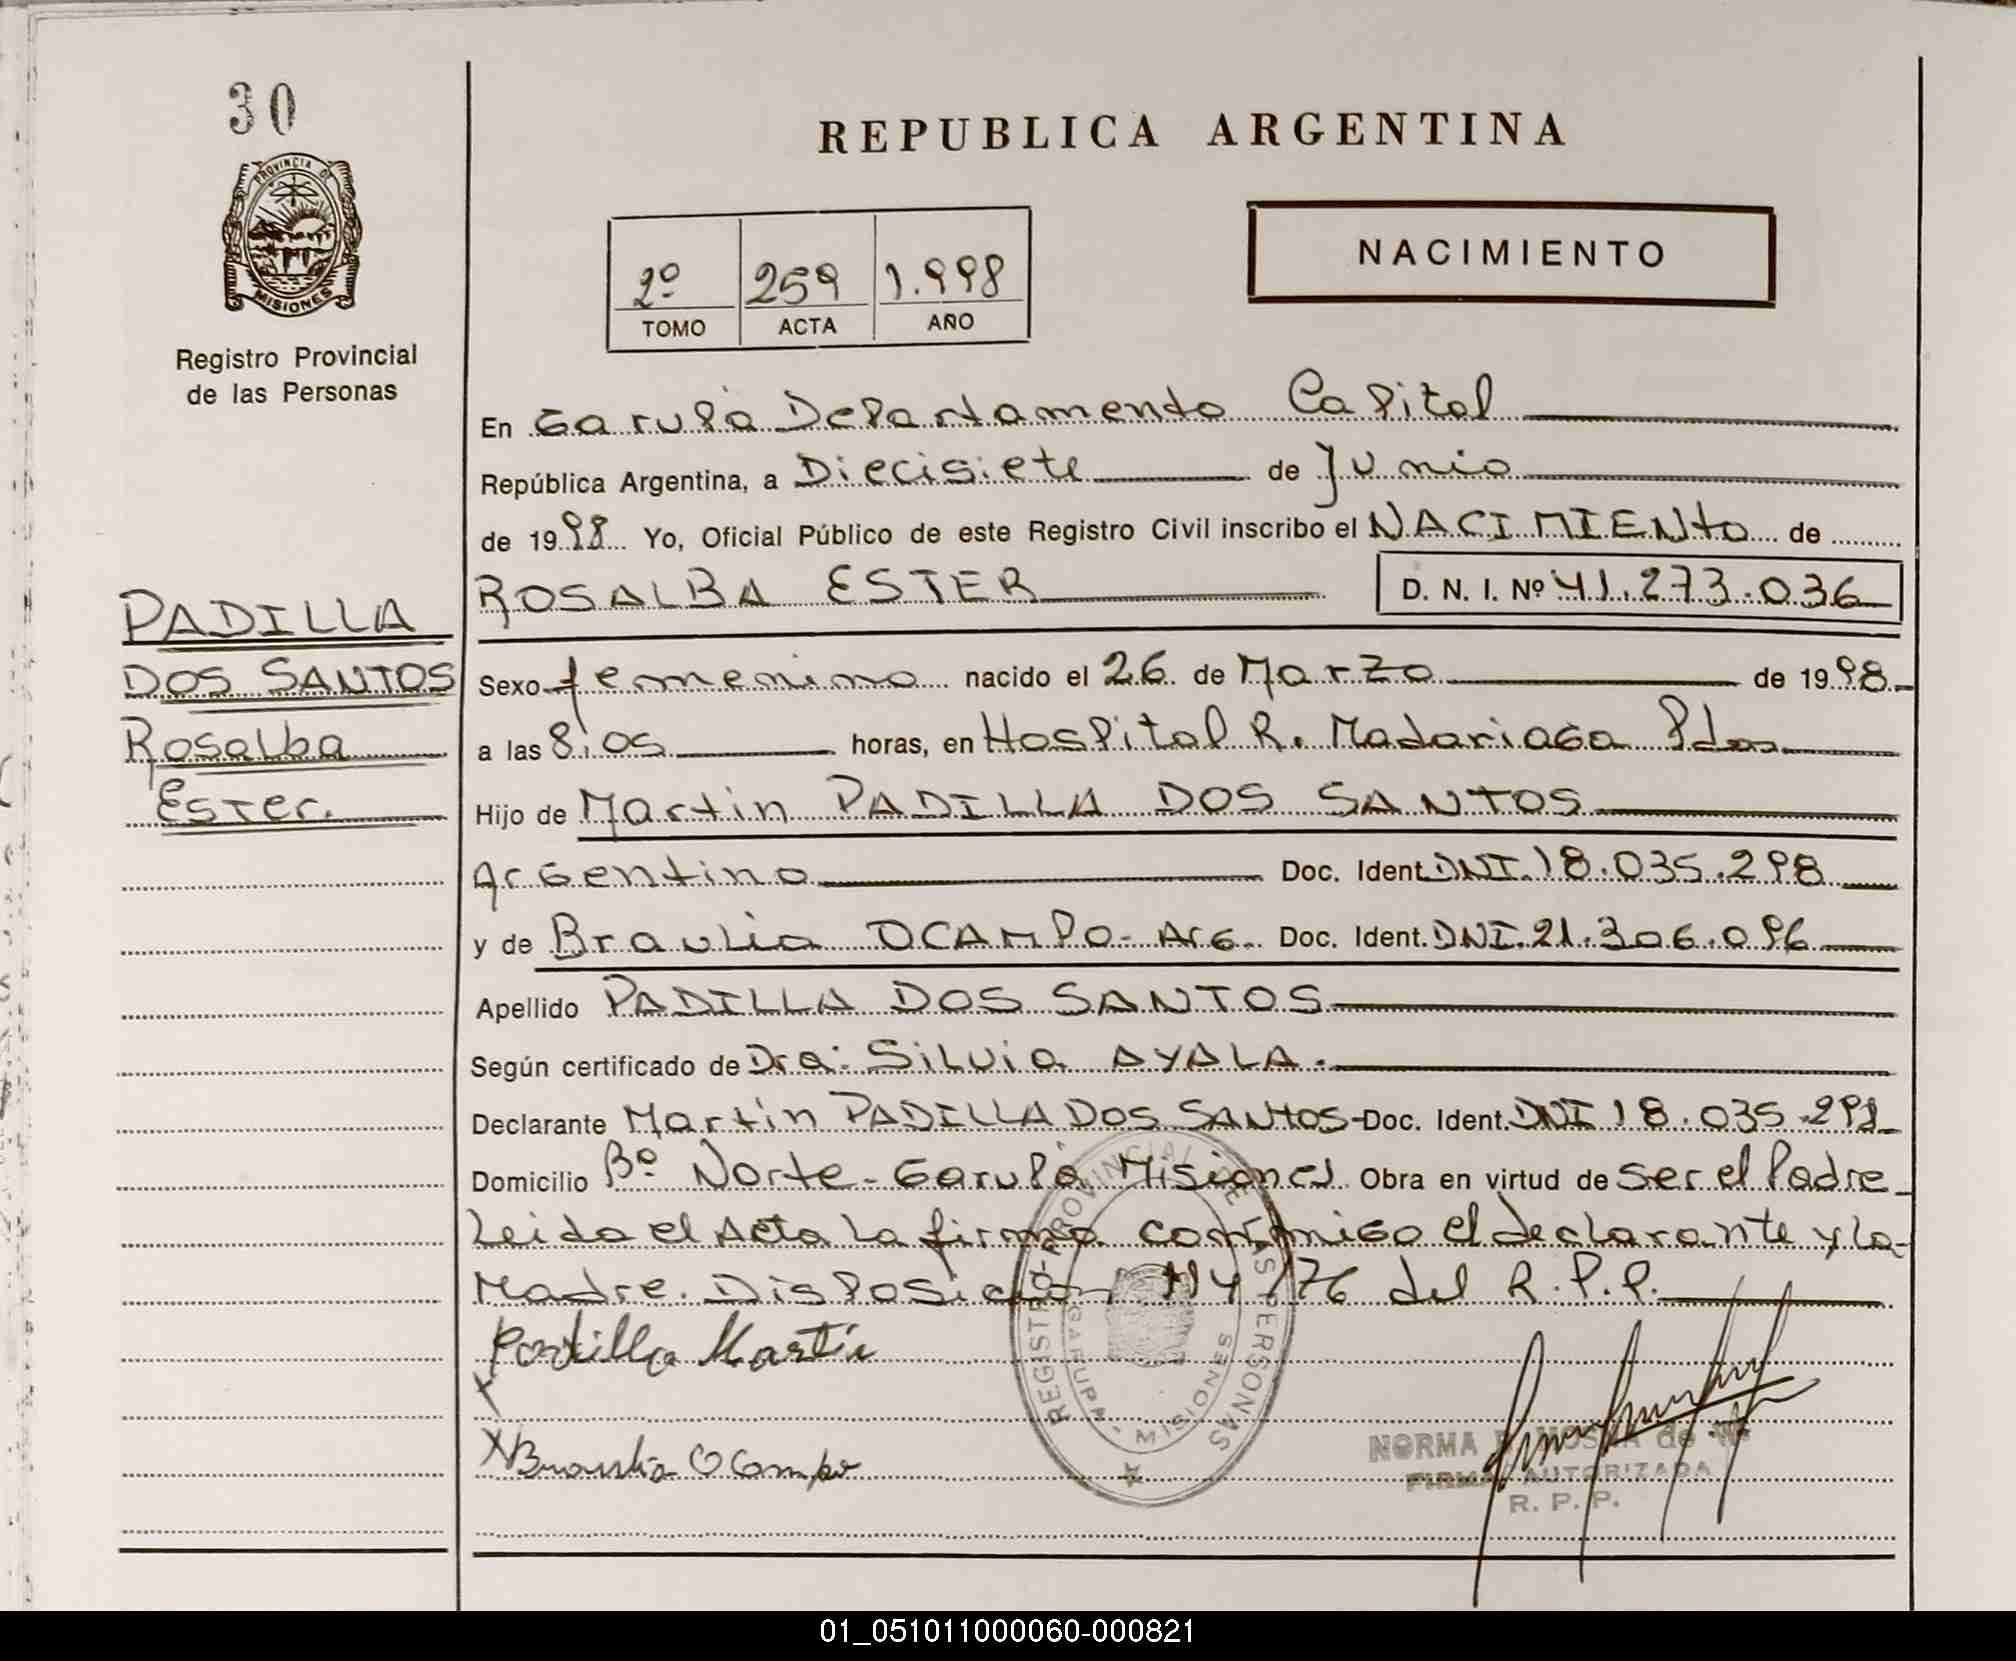 30
PROVINCIA DE
MISIONES
Registro Provincial
de las Personas
REPUBLICA ARGENTINA
2º 259 1.998
TOMO ACTA AÑO
NACIMIENTO
En Garupá Departamento Capital
República Argentina, a Diecisiete de Junio
de 1998 Yo, Oficial Público de este Registro Civil inscribo el NACIMIENto de
ROSALBA ESTER D. N. I. Nº 41.273.036
PADILLA
DOS SANTOS
Rosalba
Ester.
Sexo femenino nacido el 26 de Marzo de 1998
a las 8:05 horas, en Hospital R. Madariaga Pdas
Hijo de Martin PADILLA DOS SANTOS
Argentino Doc. Ident. DNI.18.035.298
y de Braulia OCAMPO- Arg. Doc. Ident. DNI.21.306.096
Apellido PADILLA DOS SANTOS
Según certificado de Dra: Silvia AYALA.
Declarante Martin PADILLA DOS SANtOS-Doc. Ident. DNI 18.035.298
Domicilio Bº Norte-Garupá Misiones Obra en virtud de ser el Padre
Leido el Acta La firma conmigo el declarante y la
Madre. Disposición 114/76 del R.P.P.
Padilla Martin
X
X Braulia Ocampo
REGISTRO PROVINCIAL DE LAS PERSONAS
GARUPA MISIONES
NORMA
FIRMA AUTORIZADA
R. P. P.
01_051011000060-000821